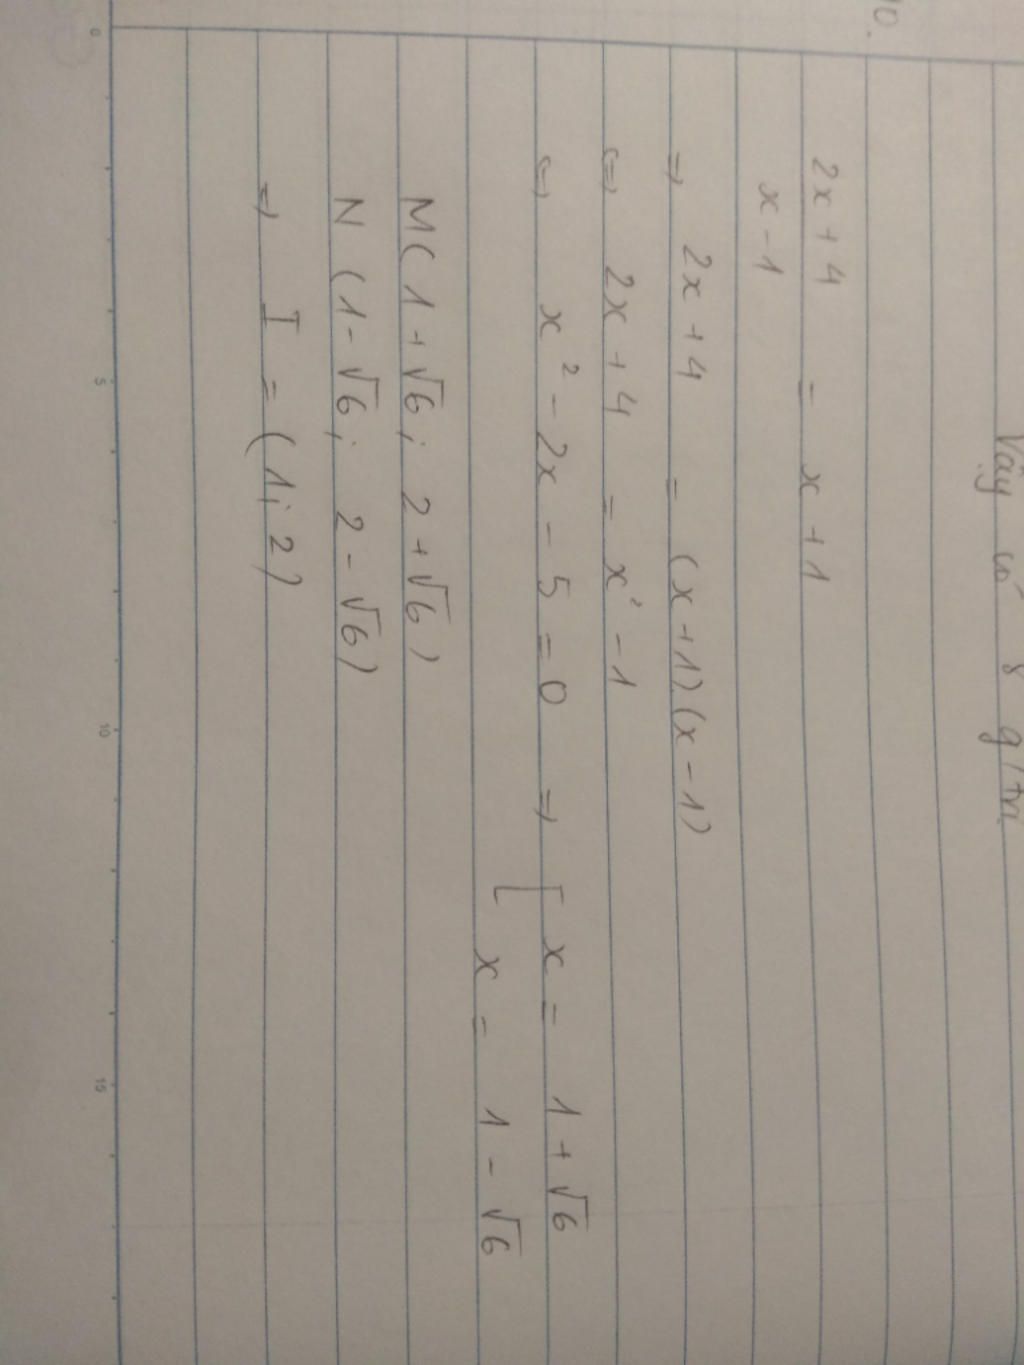 Vậy có 8 g/trị
10.
2x + 4 / x - 1 = x + 1
=> 2x + 4 = (x + 1)(x - 1)
<=> 2x + 4 = x² - 1
<=> x² - 2x - 5 = 0 => [ x = 1 + √6
x = 1 - √6
M(1 + √6; 2 + √6)
N(1 - √6; 2 - √6)
=> I = (1; 2)
0 5 10 15